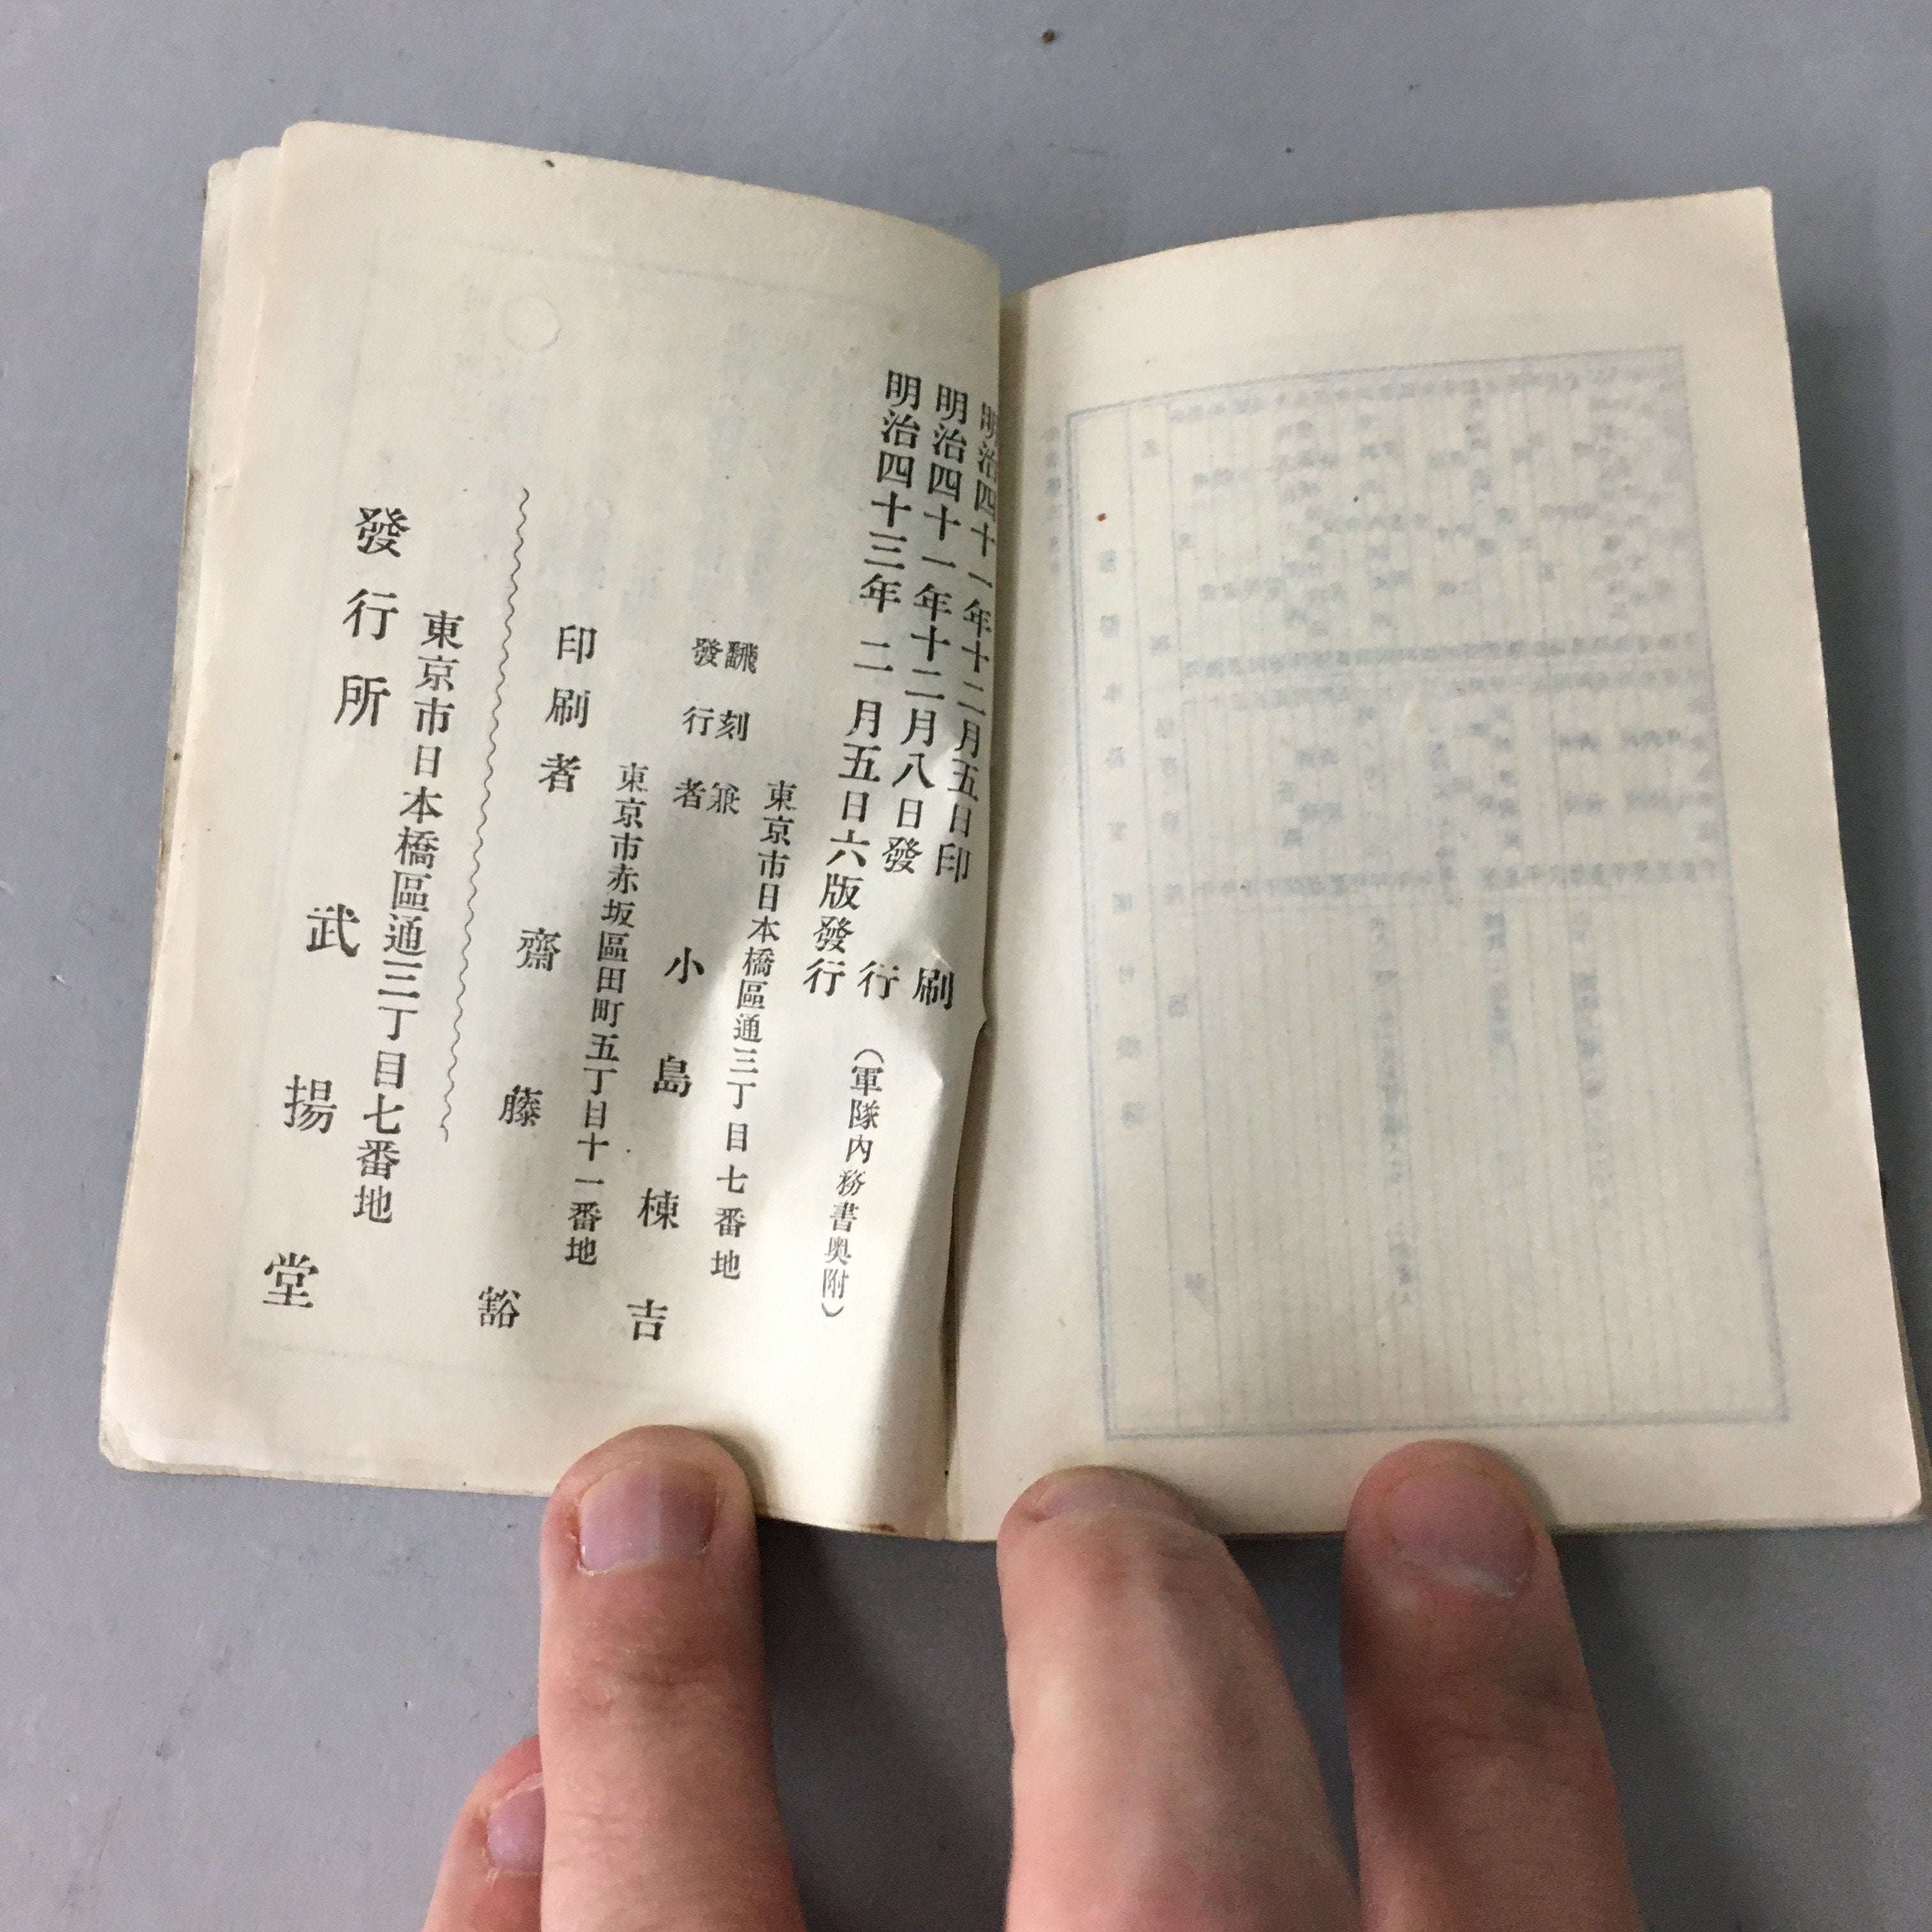 明治四十一年十二月五日印刷
明治四十一年十二月八日發行
明治四十三年二月五日六版發行
（軍隊内務書奥附）
東京市日本橋區通三丁目七番地
飜刻兼
發行者
小島棟吉
東京市赤坂區田町五丁目十一番地
印刷者 齋藤豁
東京市日本橋區通三丁目七番地
發行所 武揚堂